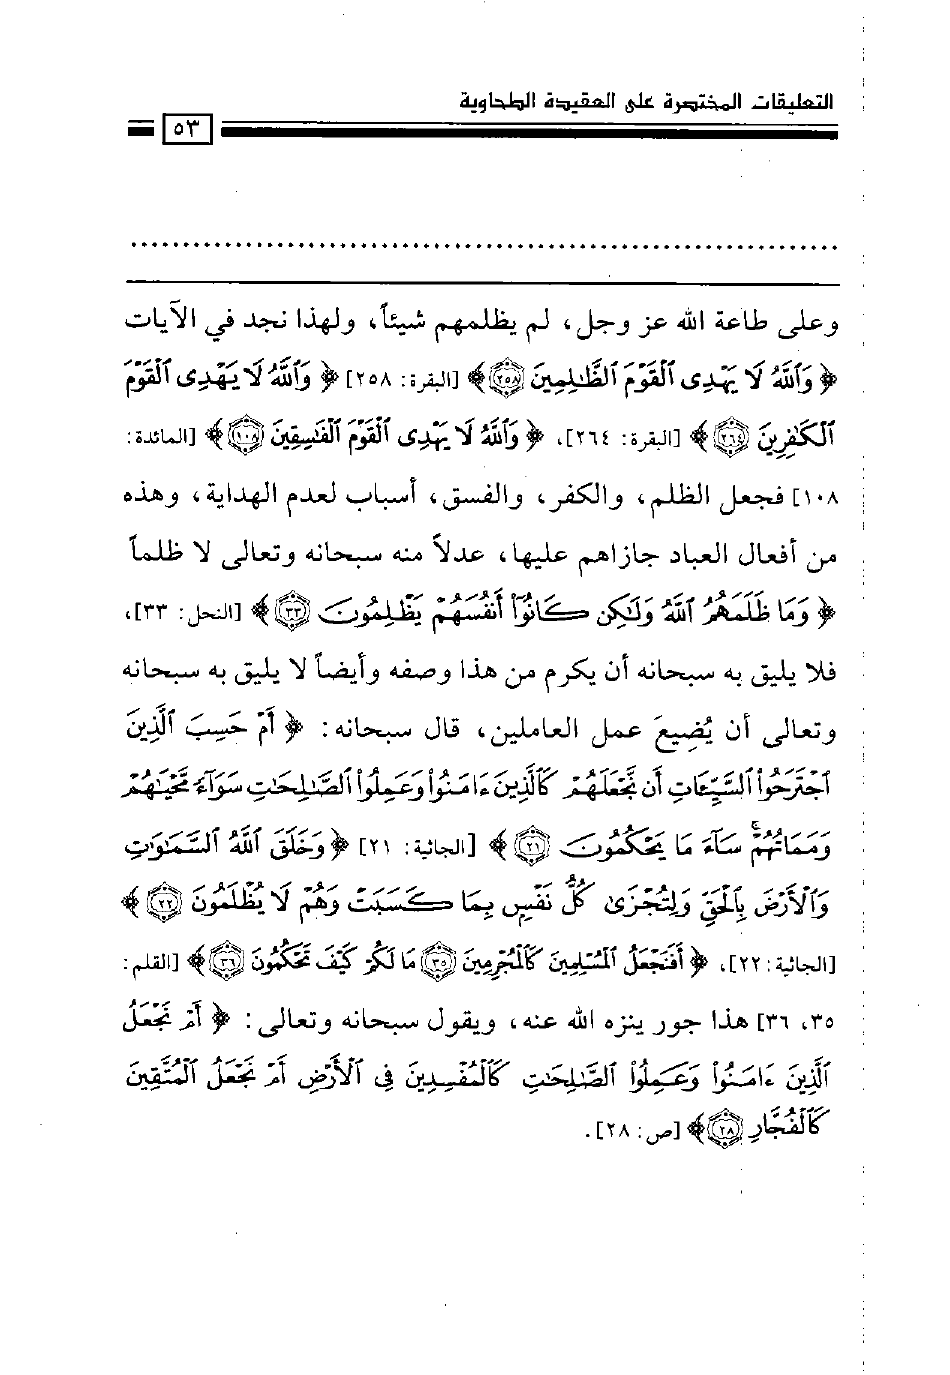 التعليقات المختصرة على العقيدة الطحاوية
٥٣
وعلى طاعة الله عز وجل، لم يظلمهم شيئاً، ولهذا نجد في الآيات
﴿ وَٱللَّهُ لَا يَهْدِى ٱلْقَوْمَ ٱلظَّـٰلِمِينَ ٢٥٨ ﴾ [البقرة: ٢٥٨] ﴿ وَٱللَّهُ لَا يَهْدِى ٱلْقَوْمَ
ٱلْكَـٰفِرِينَ ٢٦٤ ﴾ [البقرة: ٢٦٤]، ﴿ وَٱللَّهُ لَا يَهْدِى ٱلْقَوْمَ ٱلْفَـٰسِقِينَ ١٠٨ ﴾ [المائدة:
١٠٨] فجعل الظلم، والكفر، والفسق، أسباب لعدم الهداية، وهذه
من أفعال العباد جازاهم عليها، عدلاً منه سبحانه وتعالى لا ظلماً
﴿ وَمَا ظَلَمَهُمُ ٱللَّهُ وَلَـٰكِن كَانُوٓا۟ أَنفُسَهُمْ يَظْلِمُونَ ٣٣ ﴾ [النحل: ٣٣]،
فلا يليق به سبحانه أن يكرم من هذا وصفه وأيضاً لا يليق به سبحانه
وتعالى أن يُضِيعَ عمل العاملين، قال سبحانه: ﴿ أَمْ حَسِبَ ٱلَّذِينَ
ٱجْتَرَحُوا۟ ٱلسَّيِّـَٔاتِ أَن نَّجْعَلَهُمْ كَٱلَّذِينَ ءَامَنُوا۟ وَعَمِلُوا۟ ٱلصَّـٰلِحَـٰتِ سَوَآءً مَّحْيَاهُمْ
وَمَمَاتُهُمْ ۚ سَآءَ مَا يَحْكُمُونَ ٢١ ﴾ [الجاثية: ٢١] ﴿ وَخَلَقَ ٱللَّهُ ٱلسَّمَـٰوَٰتِ
وَٱلْأَرْضَ بِٱلْحَقِّ وَلِتُجْزَىٰ كُلُّ نَفْسٍۭ بِمَا كَسَبَتْ وَهُمْ لَا يُظْلَمُونَ ٢٢ ﴾
[الجاثية: ٢٢]، ﴿ أَفَنَجْعَلُ ٱلْمُسْلِمِينَ كَٱلْمُجْرِمِينَ ٣٥ مَا لَكُمْ كَيْفَ تَحْكُمُونَ ٣٦ ﴾ [القلم:
٣٥، ٣٦] هذا جور ينزه الله عنه، ويقول سبحانه وتعالى: ﴿ أَمْ نَجْعَلُ
ٱلَّذِينَ ءَامَنُوا۟ وَعَمِلُوا۟ ٱلصَّـٰلِحَـٰتِ كَٱلْمُفْسِدِينَ فِى ٱلْأَرْضِ أَمْ نَجْعَلُ ٱلْمُتَّقِينَ
كَٱلْفُجَّارِ ٢٨ ﴾ [ص: ٢٨].